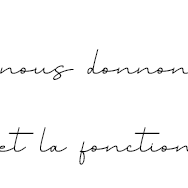 nous donnon
et la fonction